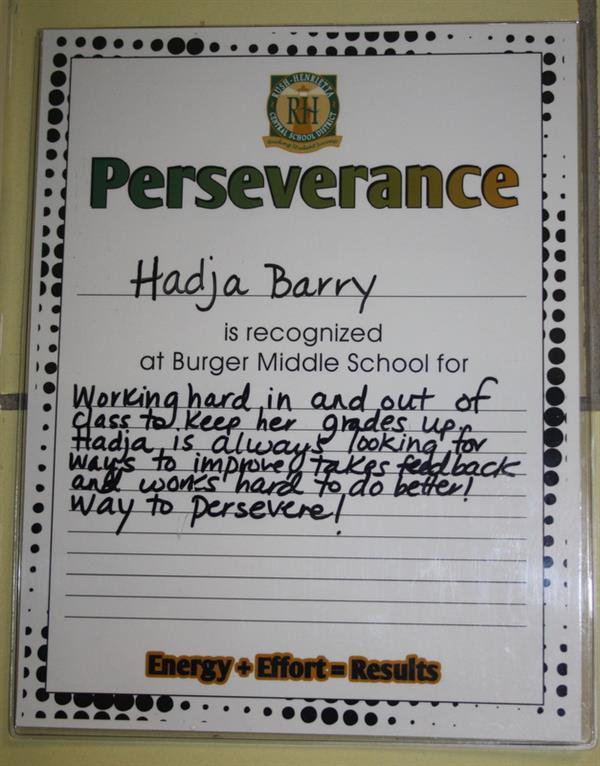 RUSH-HENRIETTA
RH
CENTRAL SCHOOL DISTRICT
Perseverance
Hadja Barry
is recognized
at Burger Middle School for
Working hard in and out of
class to keep her grades up.
Hadja is always looking for
ways to improve, takes feedback
and works hard to do better!
Way to persevere!
Energy + Effort = Results